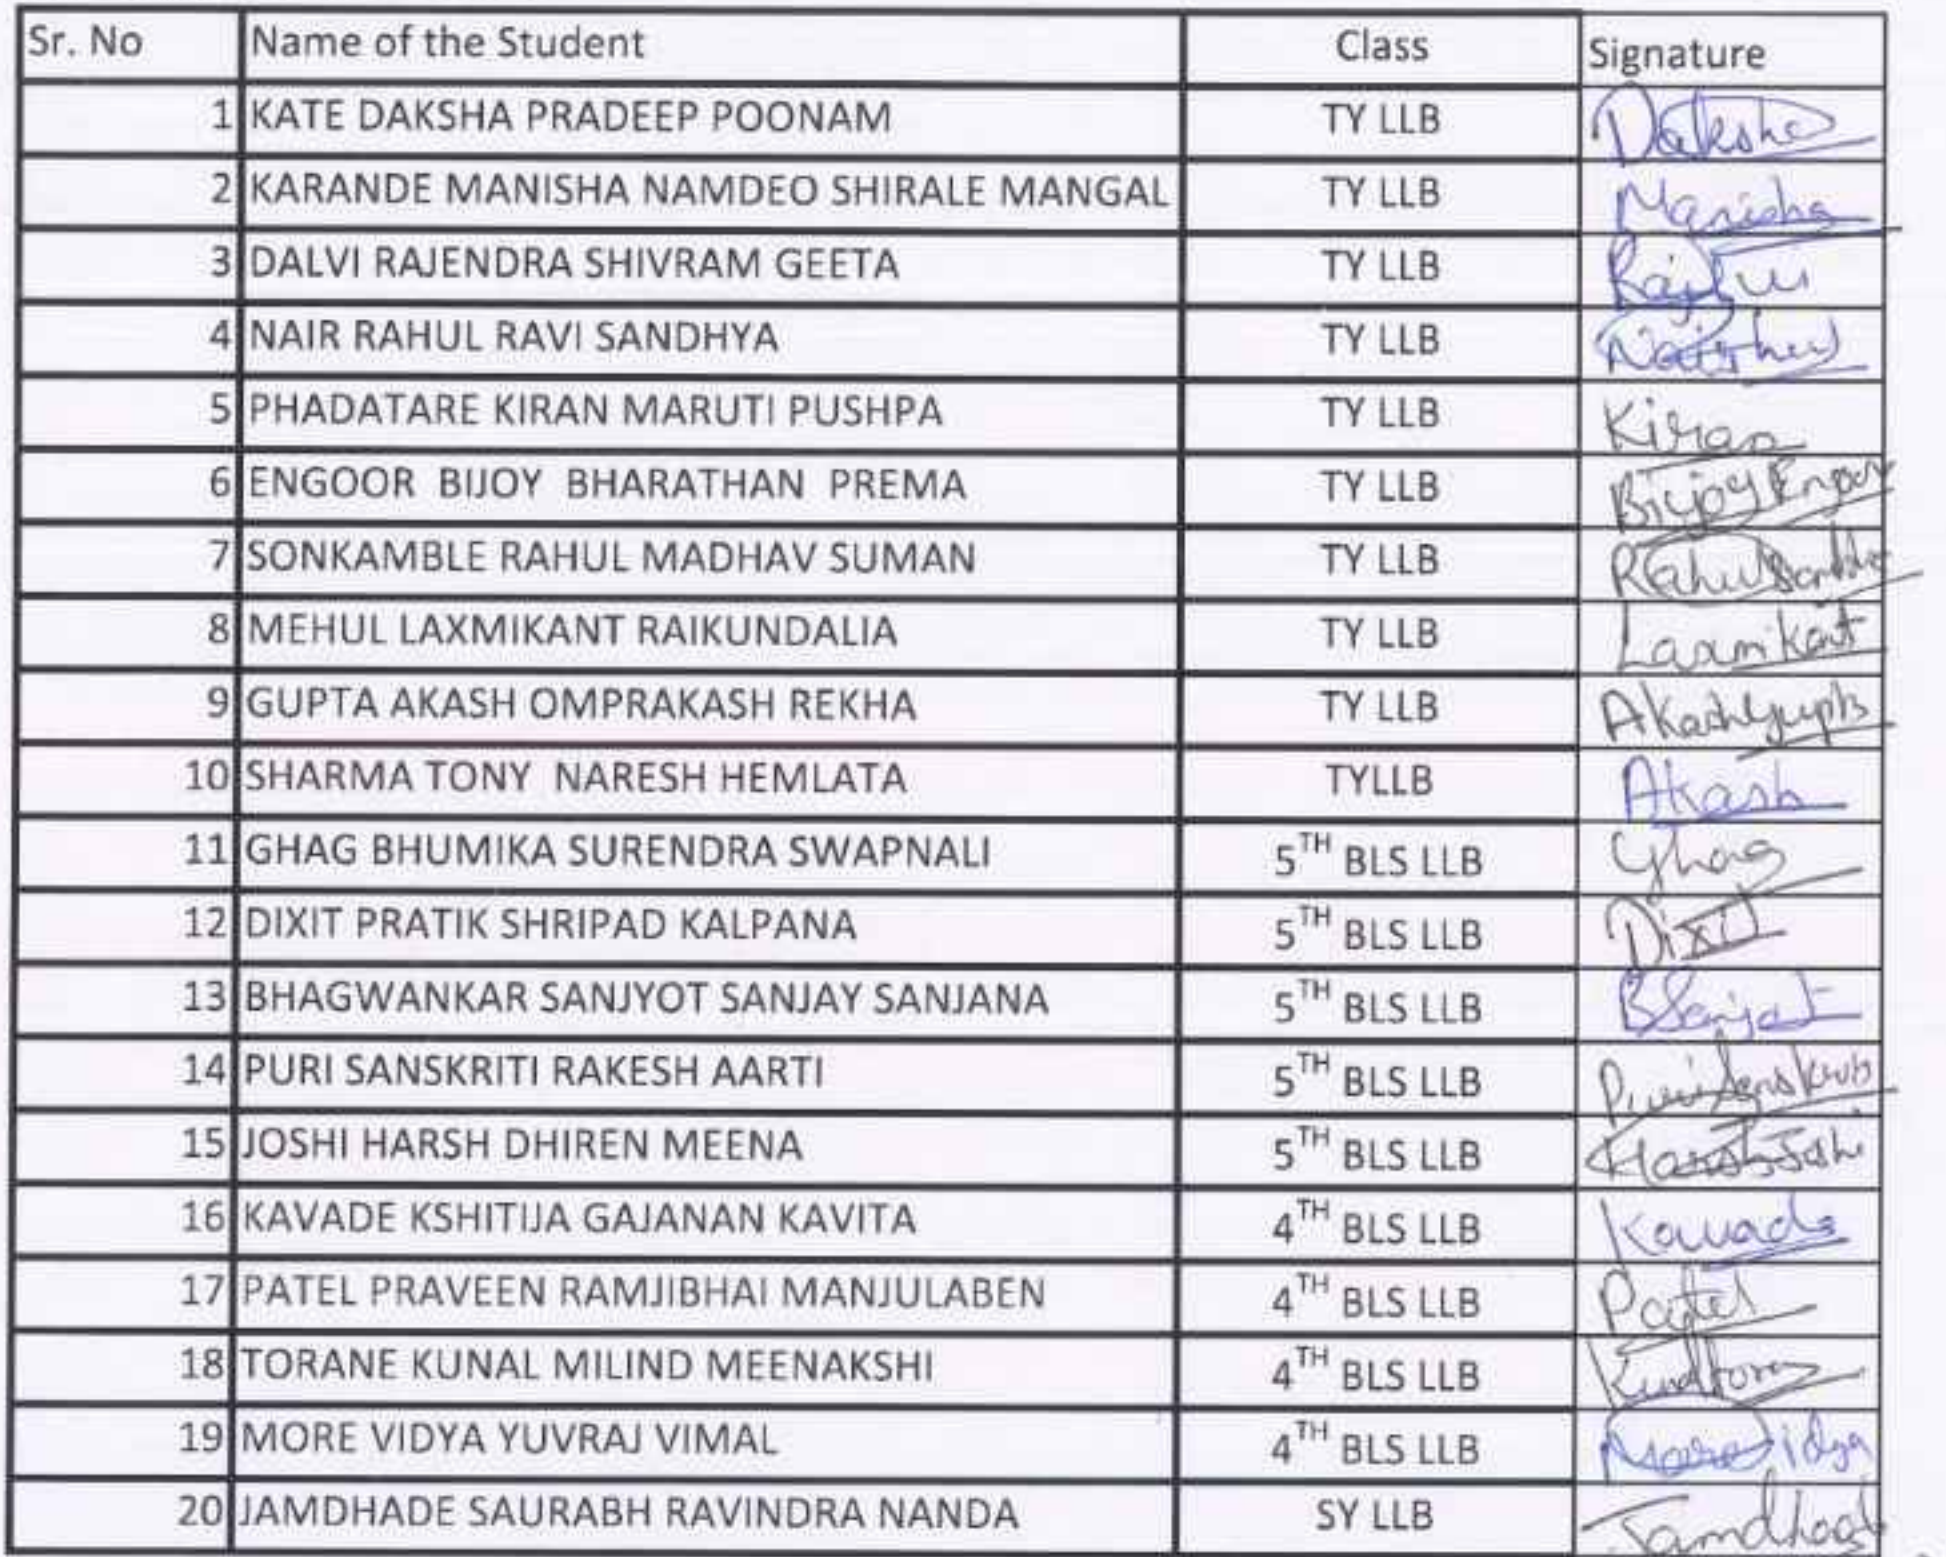 Sr. No Name of the Student Class Signature
1 KATE DAKSHA PRADEEP POONAM TY LLB Daksha
2 KARANDE MANISHA NAMDEO SHIRALE MANGAL TY LLB Manisha
3 DALVI RAJENDRA SHIVRAM GEETA TY LLB
4 NAIR RAHUL RAVI SANDHYA TY LLB
5 PHADATARE KIRAN MARUTI PUSHPA TY LLB Kiran
6 ENGOOR BIJOY BHARATHAN PREMA TY LLB Bijoy Engoor
7 SONKAMBLE RAHUL MADHAV SUMAN TY LLB Rahul
8 MEHUL LAXMIKANT RAIKUNDALIA TY LLB Laxmikant
9 GUPTA AKASH OMPRAKASH REKHA TY LLB Akash Gupta
10 SHARMA TONY NARESH HEMLATA TYLLB Akash
11 GHAG BHUMIKA SURENDRA SWAPNALI 5TH BLS LLB Ghag
12 DIXIT PRATIK SHRIPAD KALPANA 5TH BLS LLB Dixit
13 BHAGWANKAR SANJYOT SANJAY SANJANA 5TH BLS LLB
14 PURI SANSKRITI RAKESH AARTI 5TH BLS LLB
15 JOSHI HARSH DHIREN MEENA 5TH BLS LLB Harsh Joshi
16 KAVADE KSHITIJA GAJANAN KAVITA 4TH BLS LLB Kavade
17 PATEL PRAVEEN RAMJIBHAI MANJULABEN 4TH BLS LLB Patel
18 TORANE KUNAL MILIND MEENAKSHI 4TH BLS LLB
19 MORE VIDYA YUVRAJ VIMAL 4TH BLS LLB
20 JAMDHADE SAURABH RAVINDRA NANDA SY LLB